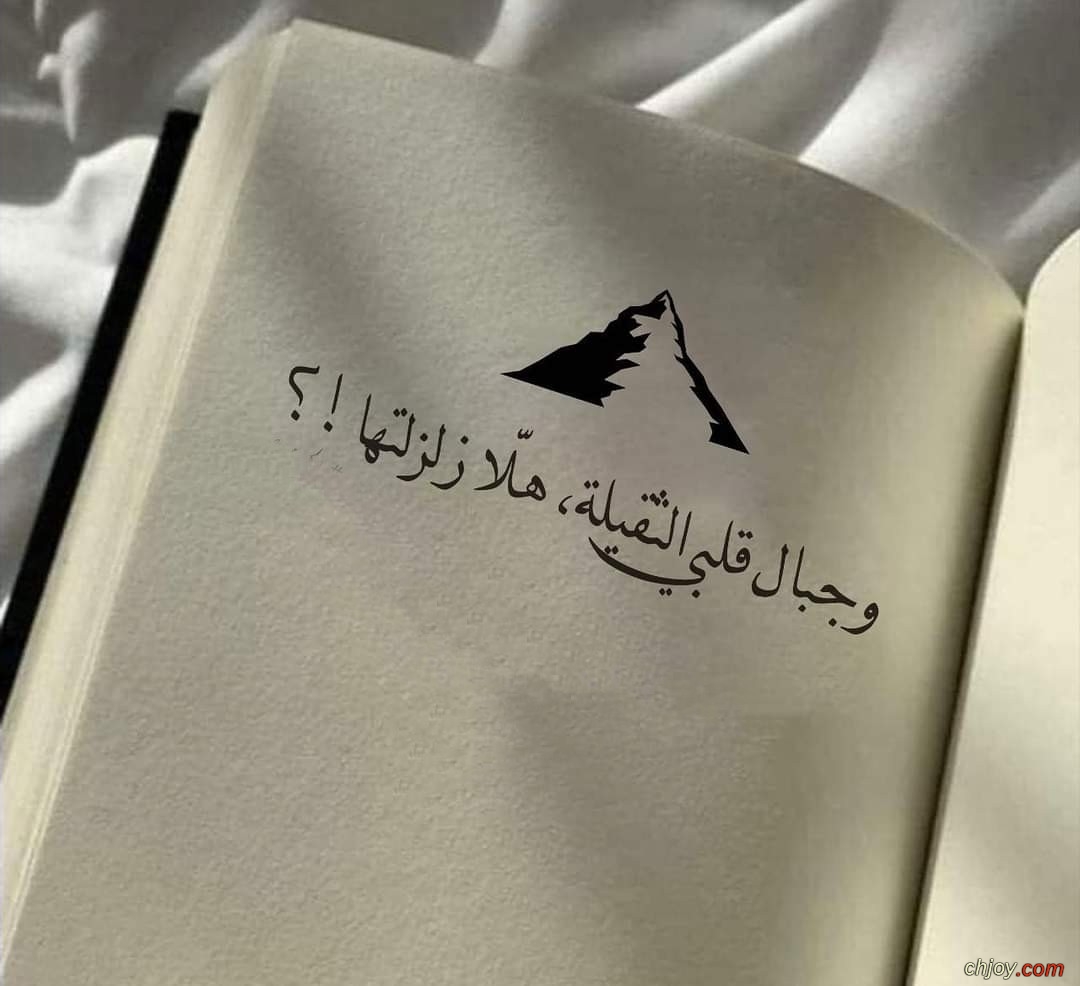 وجبال قلبي الثقيلة، هلّا زلزلتها !؟
chjoy.com